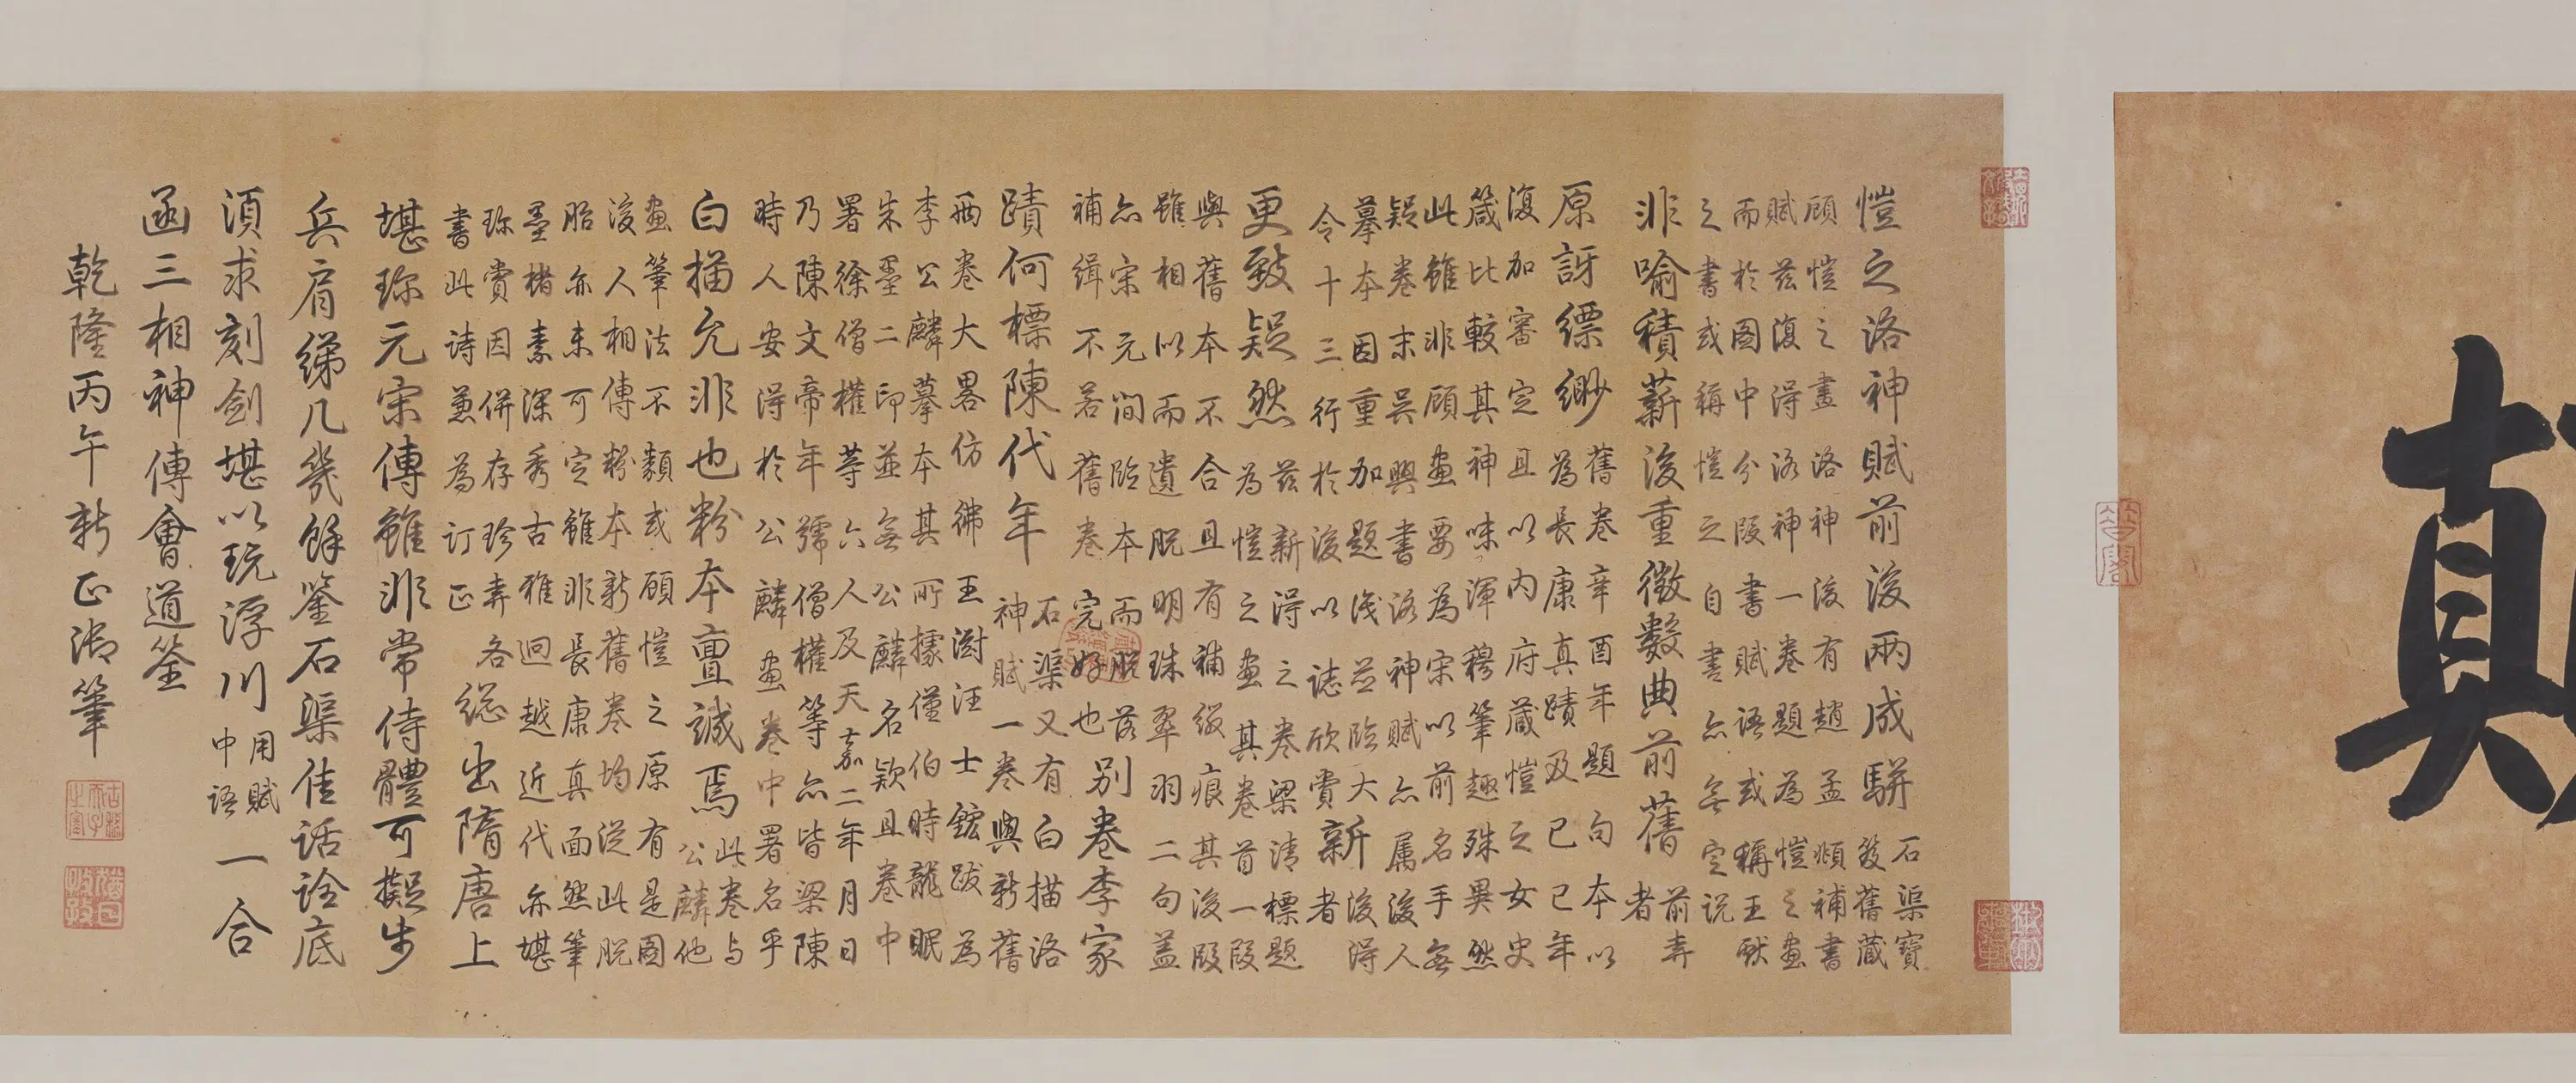 真
愷之洛神賦前後兩成駢
石渠寶
笈舊藏
顧愷之畫洛神後有趙孟頫補書
賦茲復得洛神一卷題為愷之畫
而於圖中分段書賦語或稱王獻
之書或稱愷之自書亦無定說
非喻積薪後重徵數典前舊
前弆
者
原訝縹緲
舊卷辛酉年題句本以
為長康真蹟及己巳年
復加審定且以內府藏愷之女史
箴比較其神味渾穆筆趣殊異然
此雖非顧畫要為宋以前名手無
疑卷末吳興書洛神賦亦屬後人
摹本因重加題識並臨大
令十三行於後以誌欣賞
新
後得
者
更致疑然
茲新得之卷梁清標題
為愷之畫其卷首一段
與舊本不合且有補綴痕其後段
雖相似而遺脫明珠翠羽二句蓋
亦宋元間臨本而脫落
補緝不若舊卷完好也
別卷李家
蹟何標陳代年
石渠又有白描洛
神賦一卷與新舊
兩卷大畧仿彿王澍汪士鋐跋為
李公麟摹本其所據僅伯時龍眠
朱墨二印並無公麟名款且卷中
署徐僧權等六人及天嘉二年月日
乃陳文帝年號僧權等亦皆梁陳
時人安得於公麟畫卷中署名乎
白描允非也粉本亶誠焉
此卷与
公麟他
畫筆法不類或顧愷之原有是圖
後人相傳粉本新舊卷均從此脫
胎亦未可定雖非長康真面然筆
墨楮素深秀古雅迥越近代亦堪
珍賞因併存珍弆各
書此詩兼為訂正
總出隋唐上
堪珍元宋傳雖非常侍體可擬步
兵肩綈几幾餘鑒石渠佳話詮底
須求刻劍堪以玩浮川
用賦
中語
一合
函三相神傳會道筌
乾隆丙午新正御筆